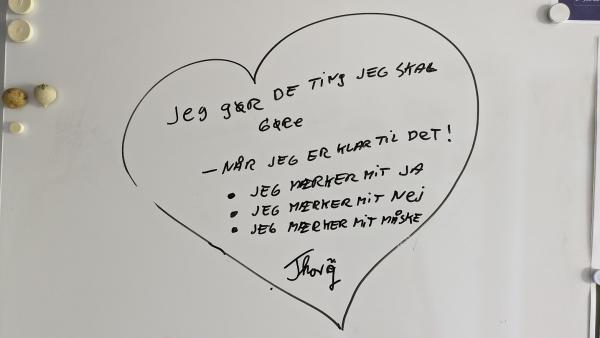 Jeg gør DE TiNg JEG SKAL
GØRe
— NÅR JEG ER KLAR TIL DET!
• JEG MÆRKER MIT JA
• JEG MÆRKER MIT Nej
• JEG MÆRKER MIT MÅSKE